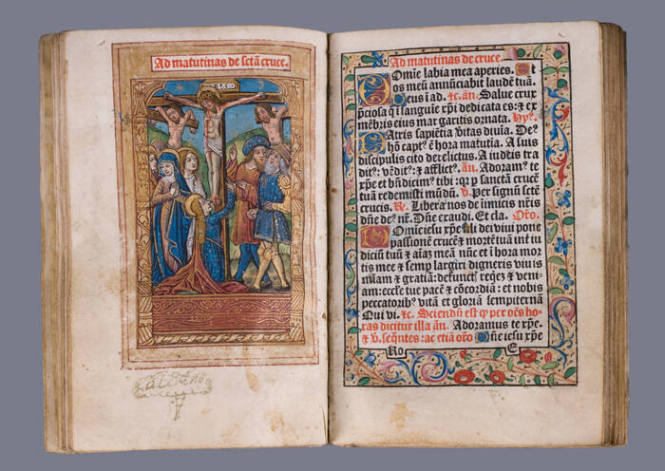 Ad matutinas de sctā cruce.
Ad matutinas de cruce
Omie labia mea aperies. Et
os meū annūciabit laudē tuā.
Deus ī ad. ⁊c. añ. Salue crux
p̄ciosa q̄ ī sanguīe xp̄i dedicata es: ⁊ ex
mēbris eius margaritis ornata. Hy⁹.
Atris sapiētia vitas diuīa. De⁹
hō capt⁹ ē hora matutīa. A suis
discipulis cito derelictus. A iudeis tra
dit⁹: vēdit⁹: ⁊ afflict⁹. añ. Adoram⁹ te
xp̄e et bn̄dicim⁹ tibi: q̄ p sanctā crucē
tuā redemisti mūdū. v. Per signū sctē
crucis. R. Libera nos de inimicis nr̄is
dn̄e de⁹ nr̄. Dn̄e exaudi. Et cla. Orō.
Omie iesu xp̄e fili dei viui pone
passionē crucē ⁊ mortē tuā int̄ iu
diciū tuū ⁊ aīaz meā nūc et ī hora mor
tis mee ⁊ semp largiri digneris viuis
mīam ⁊ gratiā: defunct̄ reqiē ⁊ veni-
am: eccl̄ie tue pacē ⁊ cōcordiā: et nobis
peccatorib⁹ vitā et gloriā sempiternā
Qui vi. ⁊c. Sciendū est q̄ per oēs ho-
ras dicitur illa añ. Adoramus te xp̄e.
⁊ v. seq̄ntes: ac etiā orō Dn̄e iesu xp̄e
Ro E